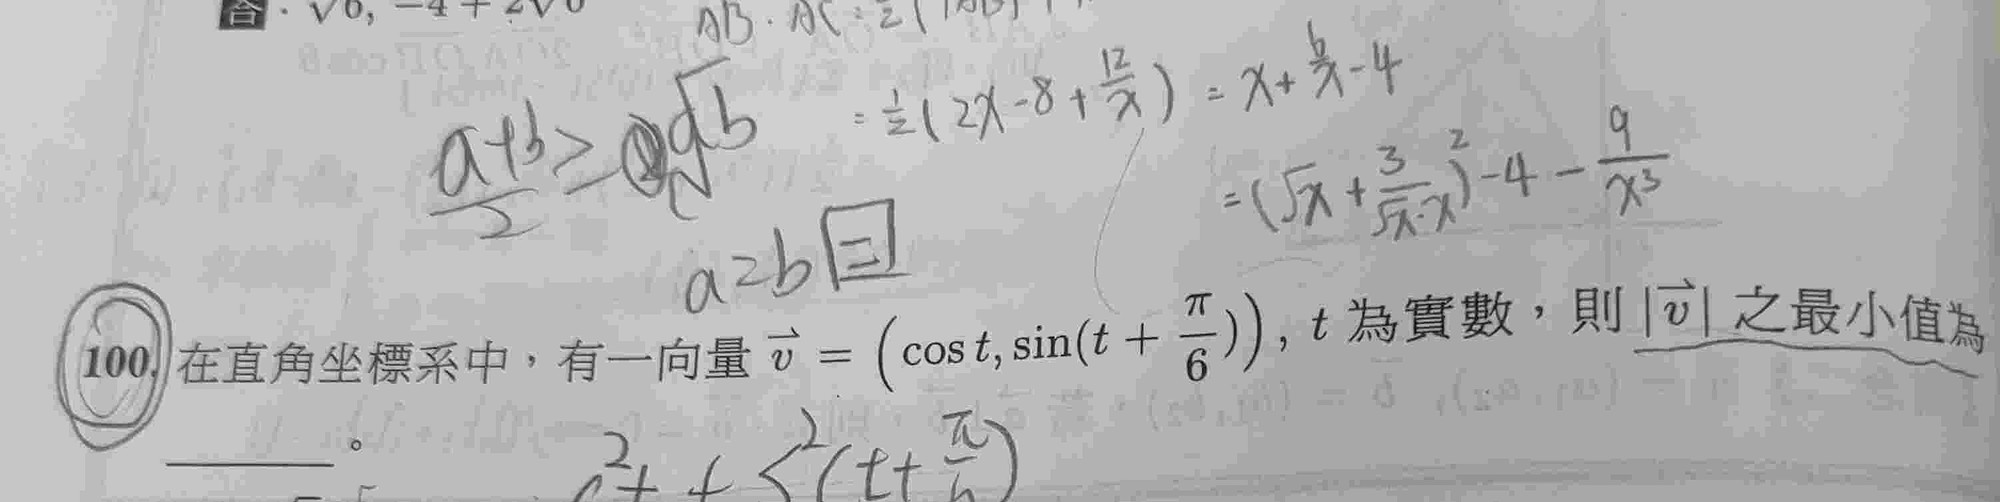 答．√6, −4 + 2√6
AB · AC = 1/2 (|AB|
= 1/2 (2x − 8 + 12/x) = x + 6/x − 4
(a+b)/2 ≥ √ab
= (√x + 3/(√x·x))² − 4 − 9/x³
a=b
100. 在直角坐標系中，有一向量 v⃗ = (cos t, sin(t + π/6)), t 為實數，則 |v⃗| 之最小值為
______。
c² t + s² (t + π/6)